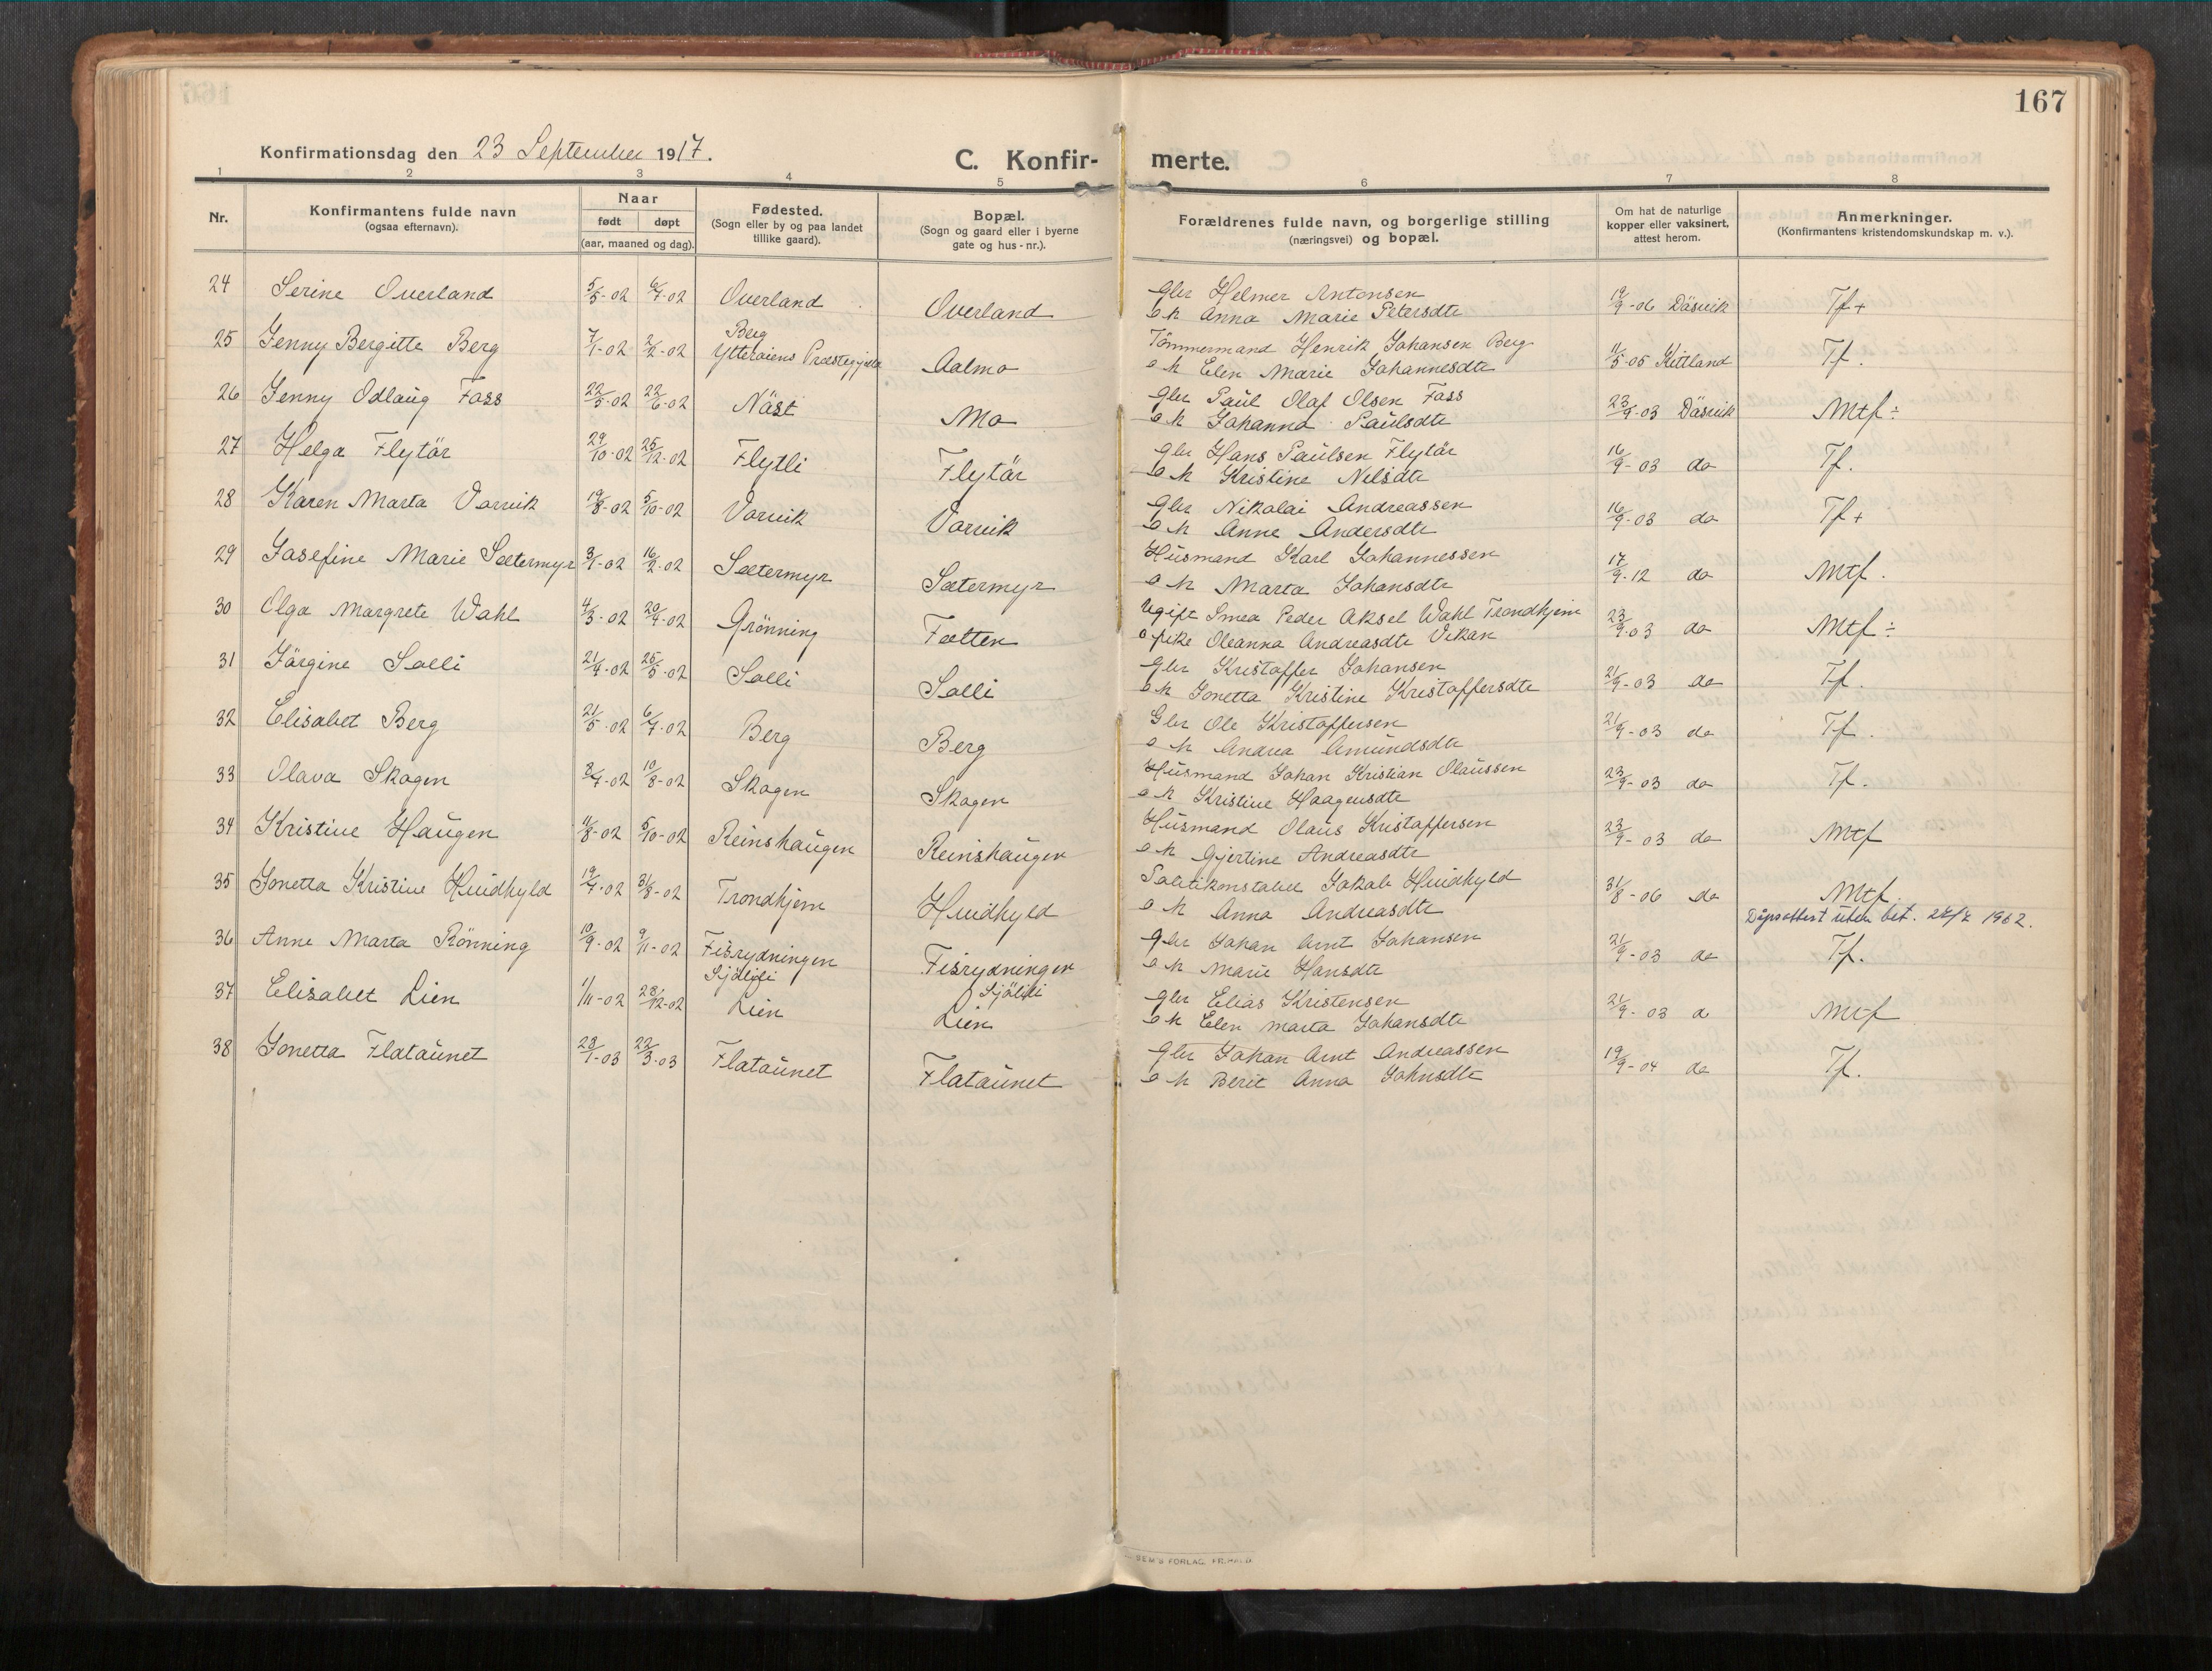 167
Konfirmationsdag den 23 September 1917.
C. Konfir- merte.
1 2 3 4 5 6 7 8
Nr.
Konfirmantens fulde navn
(ogsaa efternavn).
Naar
født døpt
(aar, maaned og dag).
Fødested.
(Sogn eller by og paa landet
tillike gaard).
Bopæl.
(Sogn og gaard eller i byerne
gate og hus - nr.).
Forældrenes fulde navn, og borgerlige stilling
(næringsvei) og bopæl.
Om hat de naturlige
kopper eller vaksinert,
attest herom.
Anmerkninger.
(Konfirmantens kristendomskundskap m. v.).
24 Serine Overland 5/5-02 6/7-02 Overland Overland Gbr Helmer Antonsen 19/9-06 Dåsvik Tf+
o k Anna Marie Petersdtr
25 Jenny Bergitte Berg 7/1-02 2/2-02 Berg Aalmo Tömmermand Henrik Johansen Berg 11/5-05 Kittland Tf.
Ytterøiens Præstegjeld o k Elen Marie Johannesdtr
26 Jenny Odlaug Foss 22/5-02 22/6-02 Näst Mo Gbr Paul Olaf Olsen Foss 23/9-03 Dåsvik Mtf ÷
o k Johanna Paulsdtr
27 Helga Flytår 29/10-02 25/12-02 Flytli Flytår Gbr Hans Paulsen Flytår 16/9-03 do Tf.
o k Kristine Nilsdtr
28 Karen Marta Vorvik 19/8-02 5/10-02 Vorvik Vorvik Gbr Nikolai Andreassen 16/9-03 do Tf+
o k Anne Andersdtr
29 Josefine Marie Sætermyr 3/1-02 16/2-02 Sætermyr Sætermyr Husmand Karl Johannessen 17/9-12 do Mtf.
o k Marta Johansdtr
30 Olga Margrete Wahl 4/3-02 20/4-02 Grönning Fætten Ugift Smed Peder Aksel Wahl Trondhjem 23/9-03 do Mtf ÷
o pike Oleanna Andreasdtr Vikan
31 Jörgine Solli 21/4-02 25/5-02 Solli Solli Gbr Kristoffer Johansen 21/9-03 do Tf.
o k Jonetta Kristine Kristoffersdtr
32 Elisabet Berg 21/5-02 6/7-02 Berg Berg Gbr Ole Kristoffersen 21/9-03 do Tf.
o k Andrea Amundsdtr
33 Olava Skogen 8/7-02 10/8-02 Skogen Skogen Husmand Johan Kristian Olaussen 23/9-03 do Tf.
o k Kristine Haagensdtr
34 Kristine Haugen 11/8-02 5/10-02 Reinshaugen Reinshaugen Husmand Olaus Kristoffersen 23/9-03 do Mtf
o k Gjertine Andreasdtr
35 Jonetta Kristine Hvidhyld 19/7-02 31/8-02 Trondhjem Hvidhyld Politikonstabel Jakob Hvidhyld 31/8-06 do Mtf.
o k Anna Andreasdtr Dåpsattest uten bet. 27/2 1962.
36 Anne Marta Rönning 10/9-02 9/11-02 Fisrydningen Fisrydningen Gbr Johan Arnt Johansen 21/9-03 do Tf.
o k Marie Hansdtr
37 Elisabet Lien 1/11-02 28/12-02 Sjölifi Lien Sjölifi Lien Gbr Elias Kristensen 21/9-03 d Mtf
o k Elen Marta Johansdtr
38 Jonetta Flataunet 23/1-03 22/3-03 Flataunet Flataunet Gbr Johan Arnt Andreassen 19/9-04 do Tf.
o k Berit Anna Johnsdtr
SEM'S FORLAG. FR.HALD